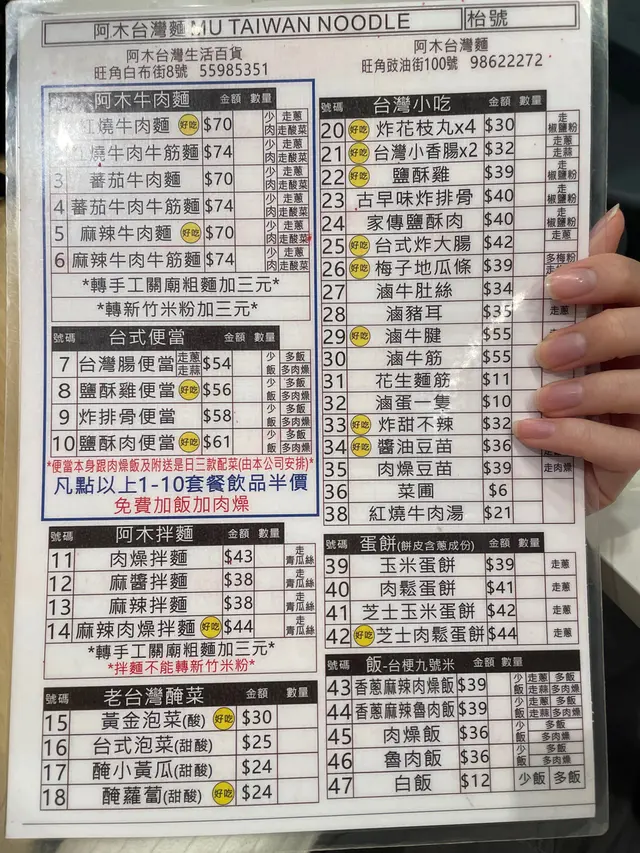 阿木台灣麵 MU TAIWAN NOODLE 枱號
阿木台灣生活百貨
旺角白布街8號 55985351
阿木台灣麵
旺角豉油街100號 98622272
阿木牛肉麵 金額 數量
紅燒牛肉麵 好吃 $70 少肉 走蔥 走酸菜
紅燒牛肉牛筋麵 $74 少肉 走蔥 走酸菜
3 蕃茄牛肉麵 $70 少肉 走蔥 走酸菜
4 蕃茄牛肉牛筋麵 $74 少肉 走蔥 走酸菜
5 麻辣牛肉麵 好吃 $70 少肉 走蔥 走酸菜
6 麻辣牛肉牛筋麵 $74 少肉 走蔥 走酸菜
*轉手工關廟粗麵加三元*
*轉新竹米粉加三元*
號碼 台式便當 金額 數量
7 台灣腸便當 走蔥 走蒜 $54 少飯 多飯 多肉燥
8 鹽酥雞便當 好吃 $56 少飯 多飯 多肉燥
9 炸排骨便當 $58 少飯 多飯 多肉燥
10 鹽酥肉便當 好吃 $61 少飯 多飯 多肉燥
*便當本身跟肉燥飯及附送是日三款配菜(由本公司安排)*
凡點以上1-10套餐飲品半價
免費加飯加肉燥
號碼 阿木拌麵 金額 數量
11 肉燥拌麵 $43 走青瓜絲
12 麻醬拌麵 $38 走青瓜絲
13 麻辣拌麵 $38 走青瓜絲
14 麻辣肉燥拌麵 好吃 $44 走青瓜絲
*轉手工關廟粗麵加三元*
*拌麵不能轉新竹米粉*
號碼 老台灣醃菜 金額 數量
15 黃金泡菜(酸) 好吃 $30
16 台式泡菜(甜酸) $25
17 醃小黃瓜(甜酸) $24
18 醃蘿蔔(甜酸) 好吃 $24
號碼 台灣小吃 金額 數量
20 好吃 炸花枝丸x4 $30 走椒鹽粉
21 好吃 台灣小香腸x2 $32 走蔥 走蒜
22 好吃 鹽酥雞 $39 走椒鹽粉
23 古早味炸排骨 $40 走椒鹽粉
24 家傳鹽酥肉 $40 走椒鹽粉
25 好吃 台式炸大腸 $42 走蔥
26 好吃 梅子地瓜條 $39 多梅粉
27 滷牛肚絲 $34
28 滷豬耳 $35 走蔥
29 好吃 滷牛腱 $55
30 滷牛筋 $55
31 花生麵筋 $11
32 滷蛋一隻 $10
33 好吃 炸甜不辣 $32
34 好吃 醬油豆苗 $36
35 肉燥豆苗 $39 走肉燥
36 菜圃 $6
38 紅燒牛肉湯 $21
號碼 蛋餅(餅皮含蔥成份) 金額 數量
39 玉米蛋餅 $39 走蔥
40 肉鬆蛋餅 $41 走蔥
41 芝士玉米蛋餅 $42 走蔥
42 好吃 芝士肉鬆蛋餅 $44 走蔥
號碼 飯-台梗九號米 金額 數量
43 香蔥麻辣肉燥飯 $39 少飯 走蔥 多飯 走蒜 多肉燥
44 香蔥麻辣魯肉飯 $39 少飯 走蔥 多飯 走蒜 多肉燥
45 肉燥飯 $36 少飯 多飯 多肉燥
46 魯肉飯 $36 少飯 多飯 多肉燥
47 白飯 $12 少飯 多飯